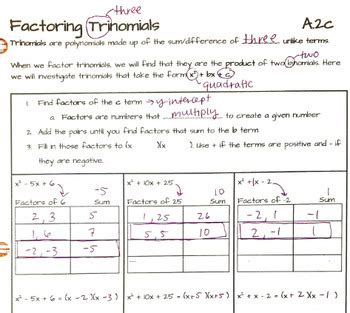 three
Factoring Trinomials A2c
Trinomials are polynomials made up of the sum/difference of three unlike terms.
two
When we factor trinomials, we will find that they are the product of two binomials. Here
we will investigate trinomials that take the form x² + bx + c
quadratic
1. Find factors of the c term → y-intercept
a. Factors are numbers that multiply to create a given number
2. Add the pairs until you find factors that sum to the b term
3. Fill in those factors to (x )(x ). Use + if the terms are positive and - if
they are negative.
x² - 5x + 6 -5
Factors of 6 Sum
2, 3 5
1, 6 7
-2, -3 -5
x² + 10x + 25 10
Factors of 25 Sum
1, 25 26
5, 5 10
x² + 1x - 2 1
Factors of -2 Sum
-2, 1 -1
2, -1 1
x² - 5x + 6 = (x - 2)(x - 3)
x² + 10x + 25 = (x + 5)(x + 5)
x² + x - 2 = (x + 2)(x - 1)